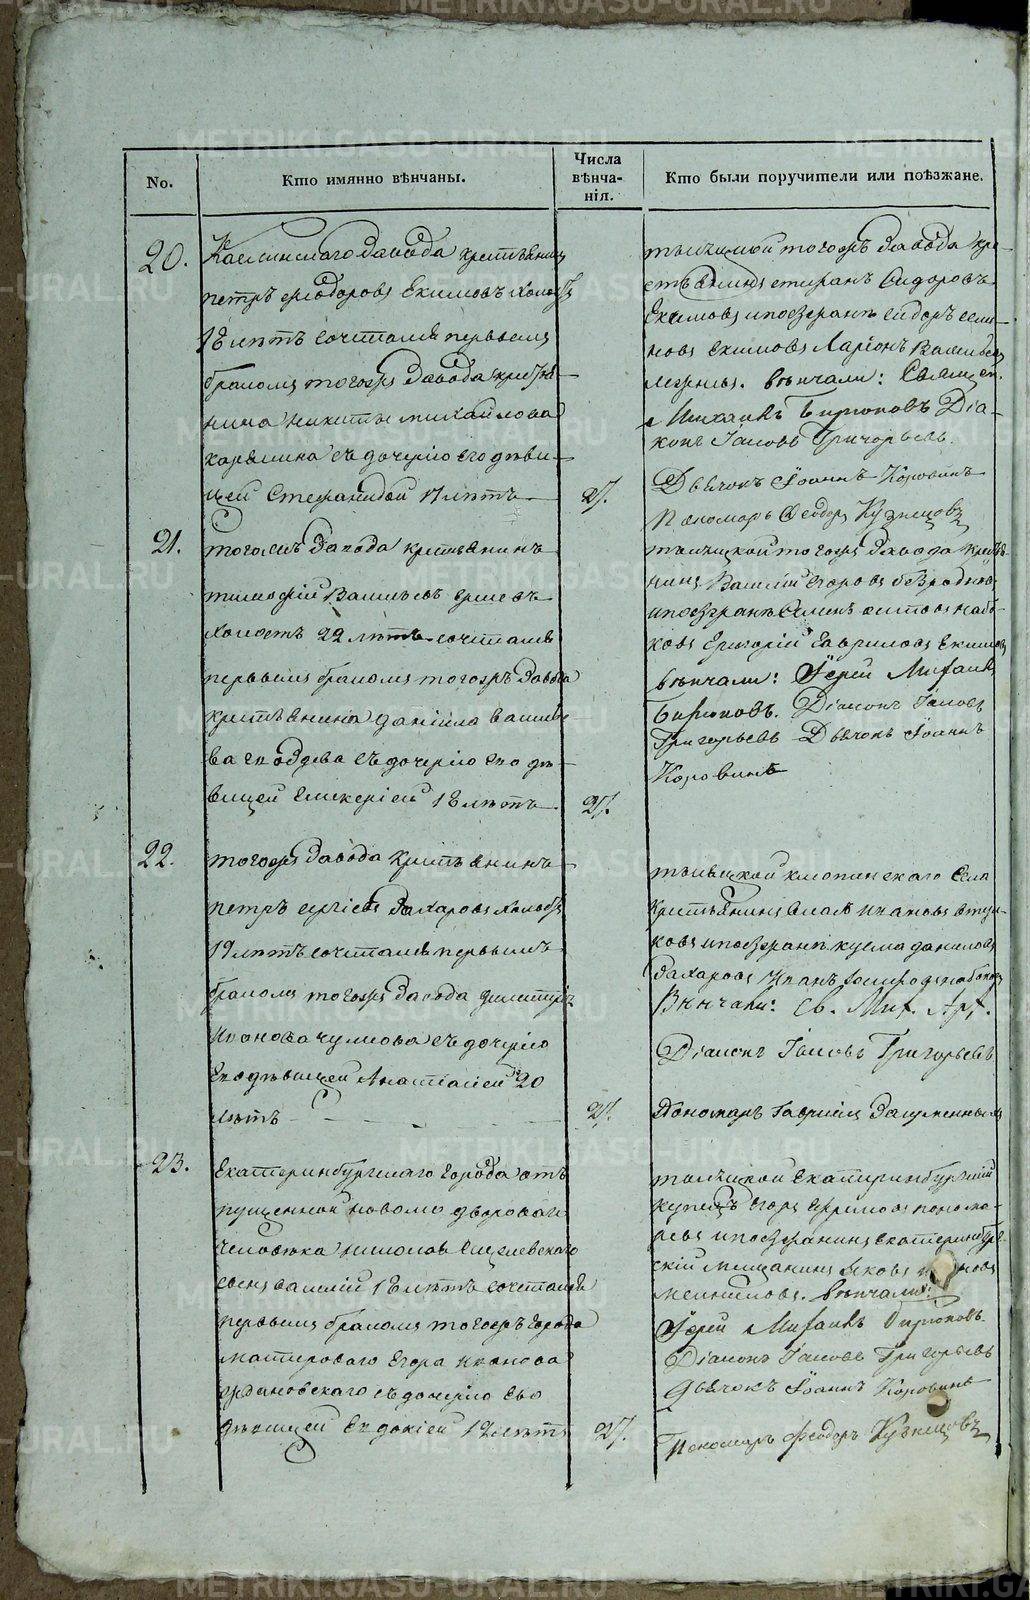 No.
Кто имянно вѣнчаны.
Числа
вѣнча-
нія.
Кто были поручители или поѣзжане.
20.
Каслинскаго завода крестьянинъ
петръ феодоровъ Екимовъ холостъ
18 лѣтъ сочтался первымъ
бракомъ тогожъ завода крестья-
нина никиты михайлова
карѣлина съ дочерию его дѣви-
цей Стефанидой 17 лѣтъ
27.
тысяцкой тогожъ завода кре-
стьянинъ стефанъ Сидоровъ
Екимовъ и поѣзжанѣ сидоръ семе-
новъ екимовъ Ларіонъ Васильевъ
вѣнчали: Священ.
Михаилъ Бирюковъ Діа-
конъ Іаковъ Григорьевъ.
Дьячокъ Іоаннъ Коровинъ
Пономарь Феодоръ Кузнецовъ
21.
тогожъ завода крестьянинъ
тимофій Васильевъ ершевъ
холостъ 22 лѣтъ сочтался
первымъ бракомъ тогожъ завода
крестьянина даніила василье-
ва съ дочерию его дѣ-
вицей Гликеріей 18 лѣтъ
27.
тысяцкой тогожъ завода крестья-
нинъ Василій егоровъ
и поѣзжанѣ Семенъ
ковъ григорій гавриловъ Екимовъ
вѣнчали: Іерей Михаилъ
Бирюковъ. Діаконъ Іаковъ
Григорьевъ Дьячокъ Іоаннъ
Коровинъ
22.
тогожъ завода крестьянинъ
петръ сергіевъ Захаровъ холостъ
19 лѣтъ сочтался первымъ
бракомъ тогожъ завода димитрія
иванова чулкова съ дочерию
его дѣвицей Анастасіей 20
лѣтъ
27.
тысяцкой клопинскаго села
крестьянинъ ивановъ
ковъ и поѣзжанѣ кузма даниловъ
Захаровъ Иванъ
Вѣнчали: Св. Мих. Арх.
Діаконъ Іаковъ Григорьевъ
Пономарь Гавріилъ
23.
Екатеринбургскаго города отъ
пущенной на волю двороваго
человѣка николая
сынъ василій 18 лѣтъ сочтался
первымъ бракомъ тогожъ города
мастероваго Егора иванова
съ дочерию его
дѣвицей Евдокіей 19 лѣтъ
27.
тысяцкой екатеринбургскій
купецъ Егоръ Ефимовъ понома-
ревъ и поѣзжанинъ екатеринбург-
скій мещанинъ Яковъ
мельниковъ. вѣнчали:
Іерей Михаилъ Бирюковъ.
Діаконъ Іаковъ Григорьевъ
Дьячокъ Іоаннъ Коровинъ
Пономарь Феодоръ Кузнецовъ
METRIKI.GASO-URAL.RU